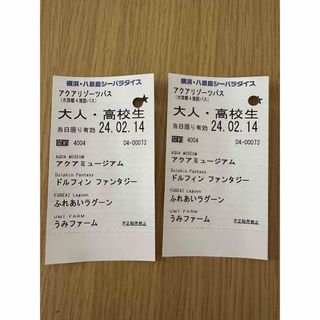 横浜・八景島シーパラダイス
アクアリゾーツパス
(水族館4施設パス)
大人・高校生
当日限り有効 24.02.14
契約 4004 04-00073
AQUA MUSEUM
アクアミュージアム
Dolphin Fantasy
ドルフィン ファンタジー
FUREAI Lagoon
ふれあいラグーン
UMI FARM
うみファーム
不正転売禁止
横浜・八景島シーパラダイス
アクアリゾーツパス
(水族館4施設パス)
大人・高校生
当日限り有効 24.02.14
契約 4004 04-00073
AQUA MUSEUM
アクアミュージアム
Dolphin Fantasy
ドルフィン ファンタジー
FUREAI Lagoon
ふれあいラグーン
UMI FARM
うみファーム
不正転売禁止